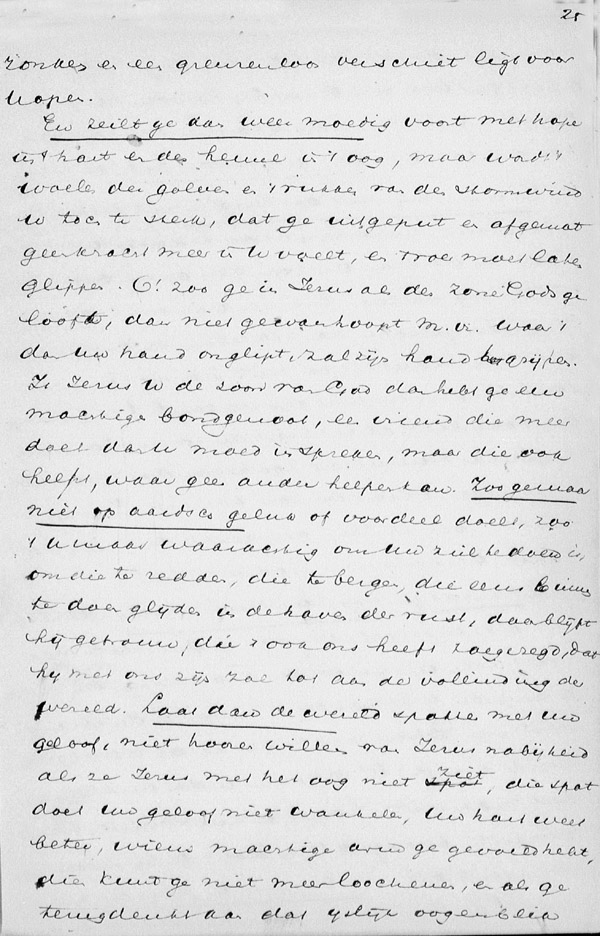 25
zonder er een grenzenloos verschiet ligt voor
hopen.
En zeilt ge dan weer moedig voort met hope
in 't hart en den hemel in 't oog, maar wordt 't
woelen der golven en 't rukken van den stormwind
u toch te sterk, dat ge uitgeput en afgemat
geen kracht meer in U voelt, en 't roer moet laten
glippen. O! zoo ge in Jezus als den zone Gods ge
looft, dan niet gewanhoopt m. vr. waar 't
dan uw hand ontglipt, zal zijn hand grijpen.
Is Jezus U de Zoon van God dan hebt ge een
machtige bondgenoot, een vriend die meer
doet dan U moed in spreken, maar die ook
helpt, waar geen ander helpen kan. Zoo ge maar
niet op aardsch geluk of voordeel doelt, zoo
't U maar waarachtig om uw ziel te doen is,
om die te redden, die te bergen, die eens binnen
te doen glijden in de haven der rust, daar blijft
hij getrouw, die 't ook ons heeft toegezegd, dat
hij met ons zijn zal tot aan de volleinding der
wereld. Laat dan de wereld spotten met uw
geloof, niet hooren willen van Jezus nabijheid
als ze Jezus met het oog niet ziet, die spot
doet uw geloof niet wankelen, uw hart weet
beter, wiens machtige arm ge gevoeld hebt,
dien kunt ge niet meer loochenen, en als ge
terugdenkt aan dat ijslijk oogenblik